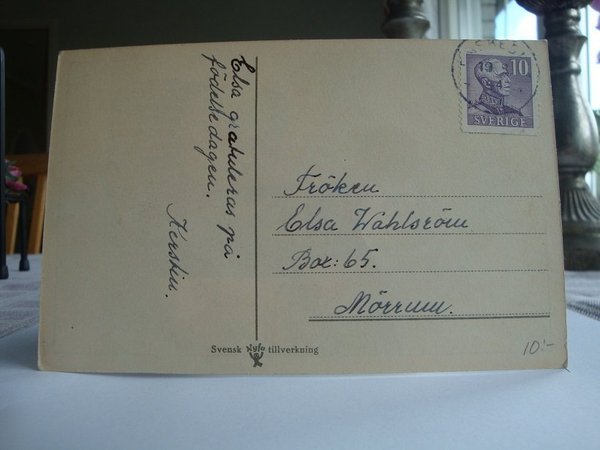 Elsa gratuleras på
födelsedagen.
Kerstin.
Fröken
Elsa Wahlsröm
Box: 65.
Mörrum.
10
SVERIGE
19
Svensk Nyla tillverkning
10:-